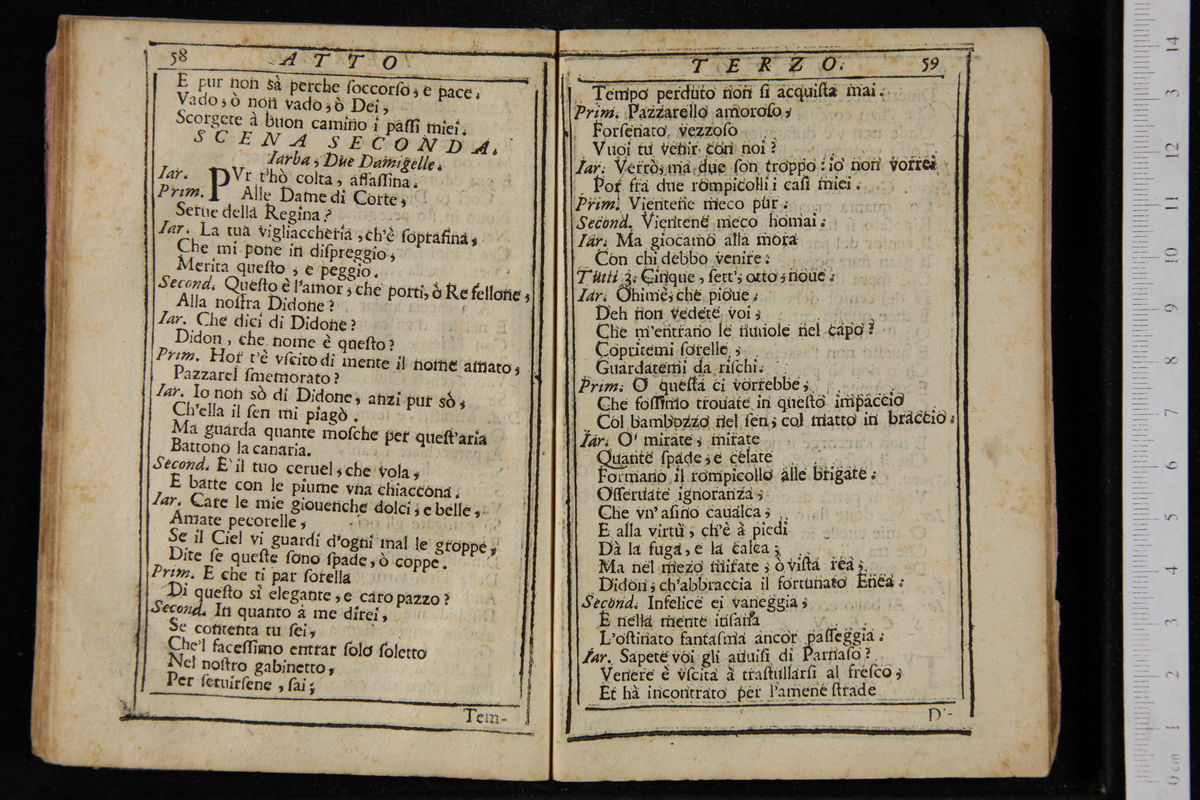 58 ATTO
E pur non sà perche ſoccorſo, e pace.
Vado, ò non vado, ò Dei,
Scorgete à buon camino i paſſi miei.
SCENA SECONDA.
Iarba, Due Damigelle.
Iar. PVr t'hò colta, aſſaſſina.
Prim. Alle Dame di Corte,
Serue della Regina?
Iar. La tua vigliaccheria, ch'è ſoprafina,
Che mi pone in diſpreggio,
Merita queſto, e peggio.
Second. Queſto è l'amor, che porti, ò Re fellone,
Alla noſtra Didone?
Iar. Che dici di Didone?
Didon, che nome è queſto?
Prim. Hor t'è vſcito di mente il nome amato,
Pazzarel ſmemorato?
Iar. Io non sò di Didone, anzi pur sò,
Ch'ella il ſen mi piagò.
Ma guarda quante moſche per queſt'aria
Battono la canaria.
Second. E' il tuo ceruel, che vola,
E batte con le piume vna chiaccona.
Iar. Care le mie giouenche dolci, e belle,
Amate pecorelle,
Se il Ciel vi guardi d'ogni mal le groppe,
Dite ſe queſte ſono ſpade, ò coppe.
Prim. E che ti par ſorella
Di queſto sì elegante, e caro pazzo?
Second. In quanto à me direi,
Se contenta tu ſei,
Che'l faceſſimo entrar ſolo ſoletto
Nel noſtro gabinetto,
Per ſeruirſene, ſai;
Tem-
TERZO. 59
Tempo perduto non ſi acquiſta mai.
Prim. Pazzarello amoroſo,
Forſenato vezzoſo
Vuoi tu venir con noi?
Iar. Verrò, ma due ſon troppo: io non vorrei
Por fra due rompicolli i caſi miei.
Prim. Vientene meco pur.
Second. Vientene meco homai.
Iar. Ma giocamo alla mora
Con chi debbo venire.
Tutti 3. Cinque, ſett', otto, noue.
Iar. Ohimè, che pioue.
Deh non vedete voi,
Che m'entrano le nuuole nel capo?
Copritemi ſorelle,
Guardatemi da riſchi.
Prim. O queſta ci vorrebbe,
Che foſſimo trouate in queſto impaccio
Col bambozzo nel ſen, col matto in braccio.
Iar. O' mirate, mirate
Quante ſpade, e celate
Formano il rompicollo alle brigate.
Oſſeruate ignoranza,
Che vn'aſino caualca,
E alla virtù, ch'è à piedi
Dà la fuga, e la calca;
Ma nel mezo mirate, ò viſta rea,
Didon, ch'abbraccia il fortunato Enea.
Second. Infelice ei vaneggia,
E nella mente inſana
L'oſtinato fantaſma ancor paſſeggia.
Iar. Sapete voi gli auuiſi di Parnaſo?
Venere è vſcita à traſtullarſi al freſco,
Et hà incontrato per l'amene ſtrade
D'-